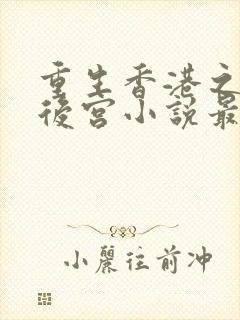 重生香港之
後宮小說最
小麗往前冲